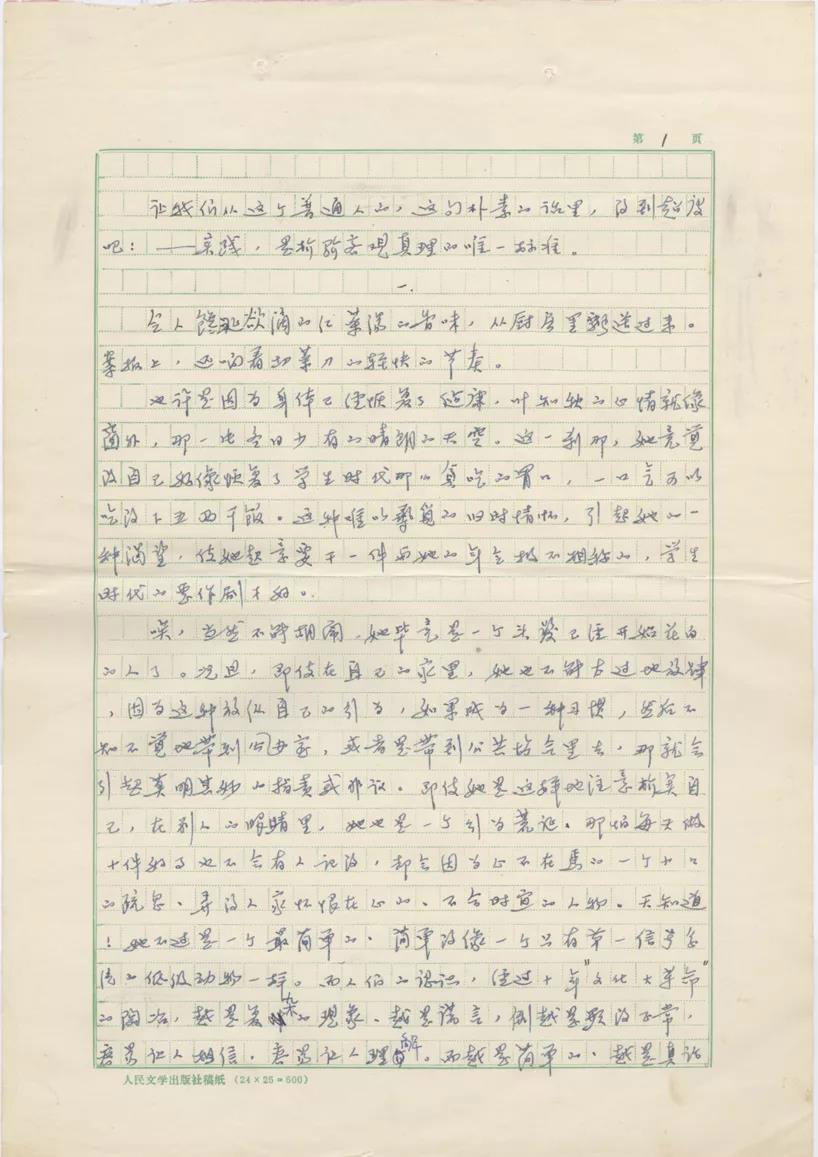 第 1 页
让我们从这个普通人的，这句朴素的话里，得到超度
吧：——实践，是检验客观真理的唯一标准。
一.
令人馋涎欲滴的红菜汤的香味，从厨房里飘送过来。
案板上，还响着切菜刀的轻快的节奏。
也许是因为身体已经恢复了健康，叶知秋的心情就像
窗外，那一片冬日少有的晴朗的天空。这一刹那，她竟觉
得自己好像恢复了学生时代那的贪吃的胃口，一口气可以
吃得下五两干饭。这种难以寻觅的旧时情怀，引起她的一
种渴望，使她起意要干一件与她的年令极不相称的，学生
时代的恶作剧才好。
唉，当然不能胡闹，她毕竟是一个头发已经开始花白
的人了。况且，即使在自己的家里，她也不能太过地放肆
，因为这种放纵自己的行为，如果成为一种习惯，然后不
知不觉地带到办公室，或者是带到公共场合里去，那就会
引起莫明其妙的指责或非议。即使她是这样地注意检突自
己，在别人的眼睛里，她也是一个行为荒诞。那怕每天做
十件好事也不会有人记得，却会因为心不在焉的一个小小
的疏忽、弄得人家怀恨在心的、不合时宜的人物。天知道
！她不过是一个最简单的、简单得像一个只有第一信号系
统的低级动物一样。而人们的认识，经过十年“文化大革命”
的陶冶，越是复杂的现象、越是谎言，倒越是显得正常，
容易让人相信，容易让人理解。而越是简单的、越是真话
人民文学出版社稿纸（24×25=600）